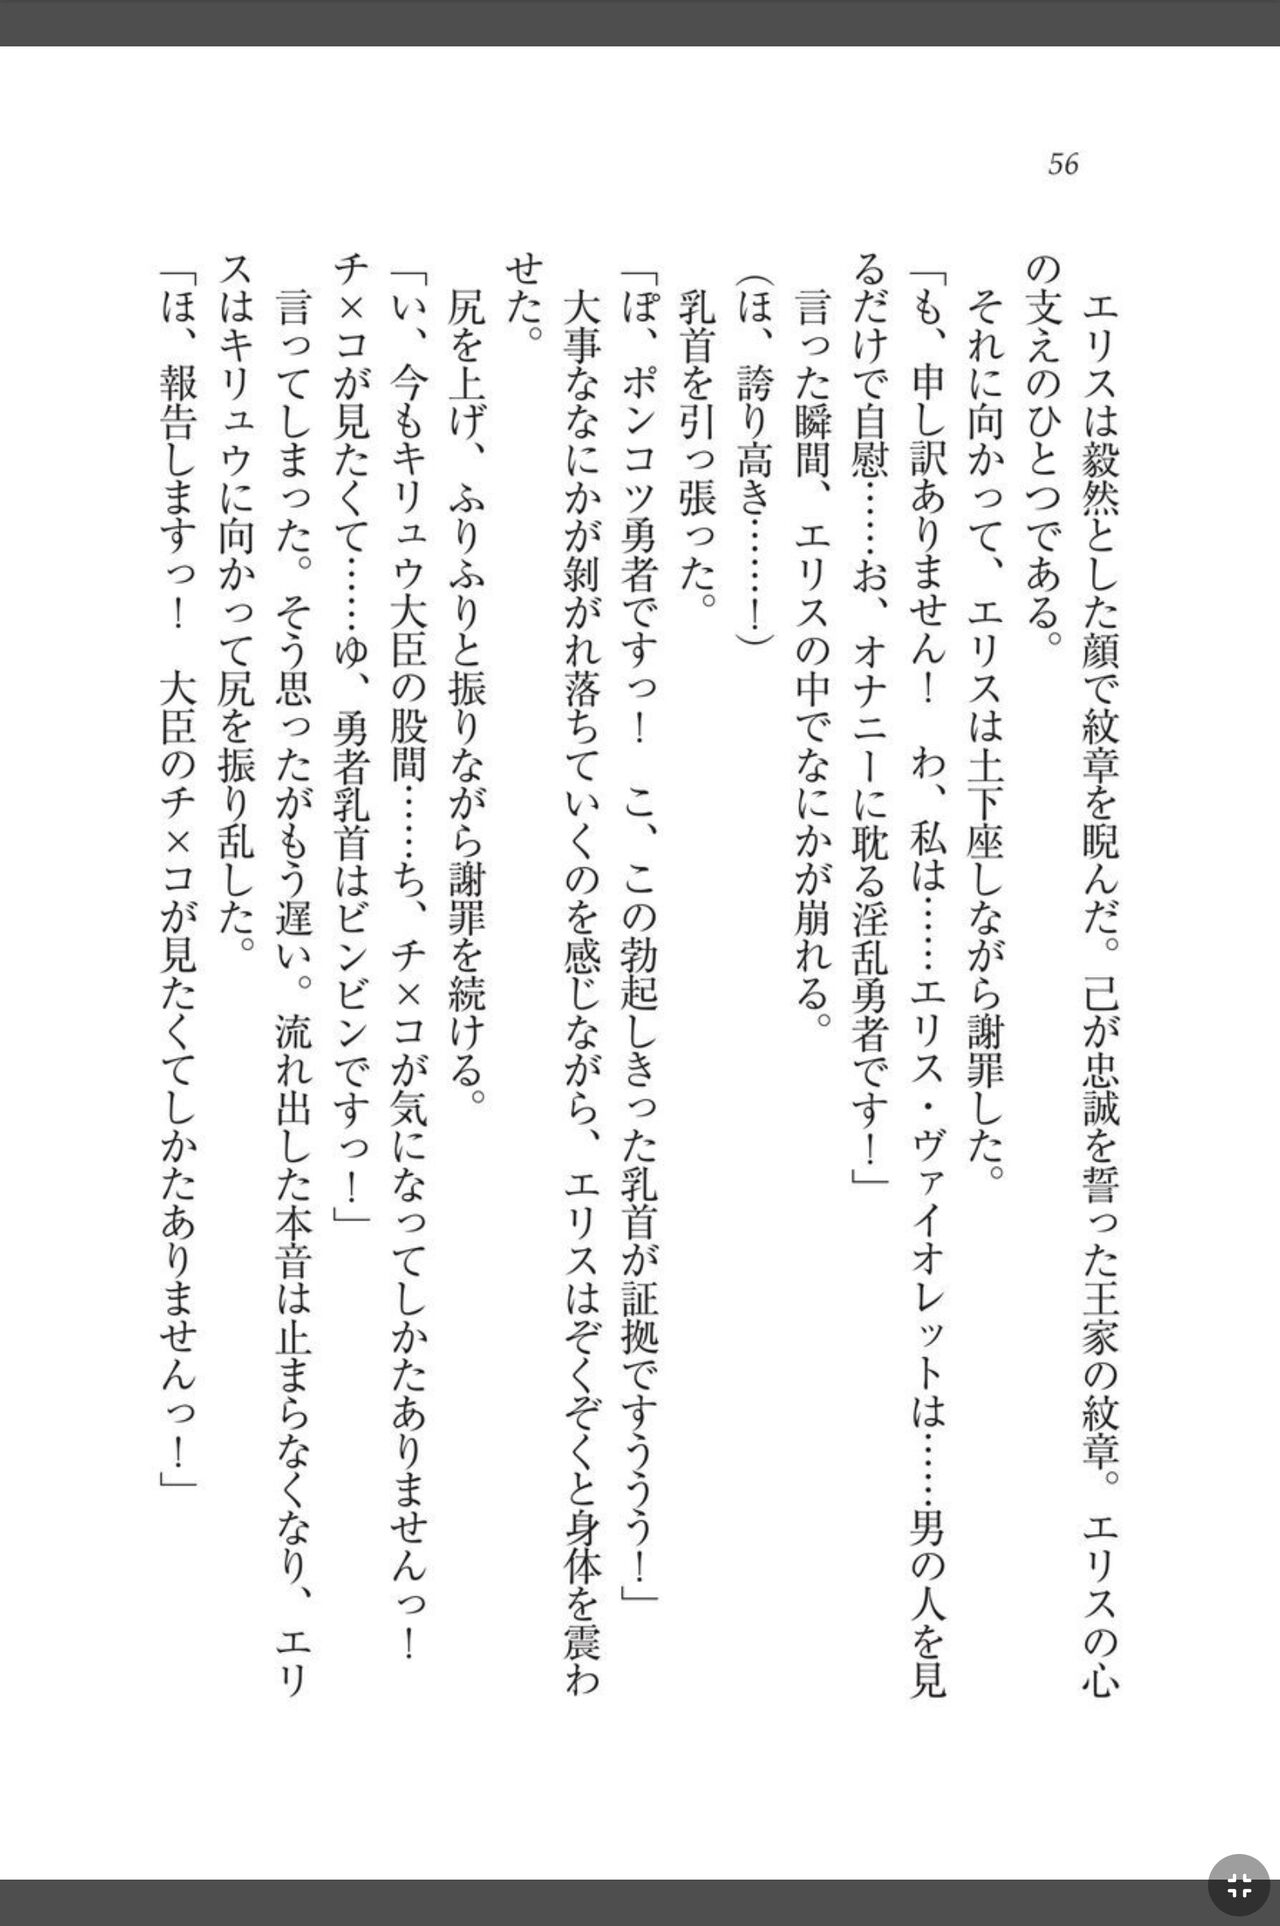 56
エリスは毅然とした顔で紋章を睨んだ。己が忠誠を誓った王家の紋章。エリスの心
の支えのひとつである。
それに向かって、エリスは土下座しながら謝罪した。
「も、申し訳ありません！　わ、私は……エリス・ヴァイオレットは……男の人を見
るだけで自慰……お、オナニーに耽る淫乱勇者です！」
言った瞬間、エリスの中でなにかが崩れる。
（ほ、誇り高き……！）
乳首を引っ張った。
「ぽ、ポンコツ勇者ですっ！　こ、この勃起しきった乳首が証拠ですううう！」
大事ななにかが剝がれ落ちていくのを感じながら、エリスはぞくぞくと身体を震わ
せた。
尻を上げ、ふりふりと振りながら謝罪を続ける。
「い、今もキリュウ大臣の股間……ち、チ×コが気になってしかたありませんっ！
チ×コが見たくて……ゆ、勇者乳首はビンビンですっ！」
言ってしまった。そう思ったがもう遅い。流れ出した本音は止まらなくなり、エリ
スはキリュウに向かって尻を振り乱した。
「ほ、報告しますっ！　大臣のチ×コが見たくてしかたありませんっ！」